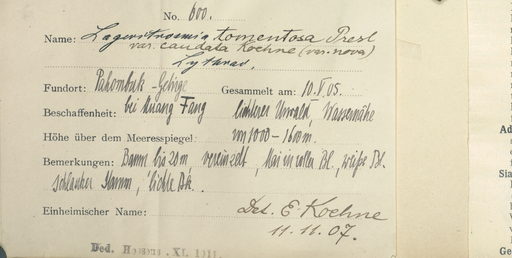 No. 600.
Name: Lagerstroemia tomentosa Presl
var. caudata Koehne (var. nova)
Lythrac.
Fundort: Pahombuk-Gebirge Gesammelt am: 10.V.05.
bei Muang Fang
Beschaffenheit: lichterer Urwald, Wassernähe
Höhe über dem Meeresspiegel: 1000-1600 m.
Bemerkungen: Baum bis 20 m vereinzelt, Mai in voller Bl., weiße Bl.
schlanker Stamm, lichte
Einheimischer Name:
Det. E. Koehne
11.11.07.
Ded. Hosseus. XI.
Ad
Sia
Ge